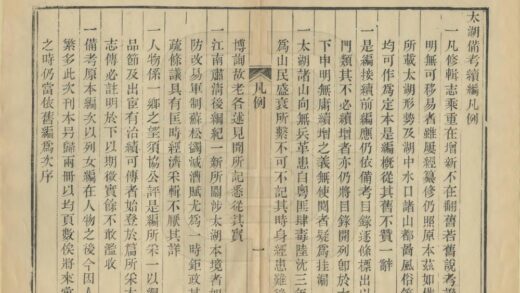 太湖備考續編凡例
一凡修輯志乘重在增新不在翻舊若舊說考
明無可移易者雖屢經纂修仍照原本茲如備
所載太湖形勢及湖中水口諸山都啚風俗
均可作爲定本是編概從其舊不贅一辭
一是編接續前編應仍依備考目錄逐條標出
門類其不必續增者亦仍將目錄開列卽於
下申明無庸續增之義無使閱者疑爲挂漏
一太湖諸山向無兵革患自粵匪肆毒陸沈三
爲山民盛衰所繫不可不記其時身經患難
凡例
一
博詢故老各述見聞所記悉從其實
一江南肅淸後綱紀一新所關涉太湖本境者如
防改易軍制蘇松減賦尤爲一時鉅政其
疏條議具有匡時經濟采輯不厭其詳
一人物係一鄉之望須協公評是編所采一以
品節及出宦有治績可傳者始登於篇所采
志傳必註明於下以期徵實餘不敢濫收
一備考原本編次以列女編在人物之後今因
繁多此次刊本另歸兩冊以均頁數俟將來
之時仍當依舊編爲次序